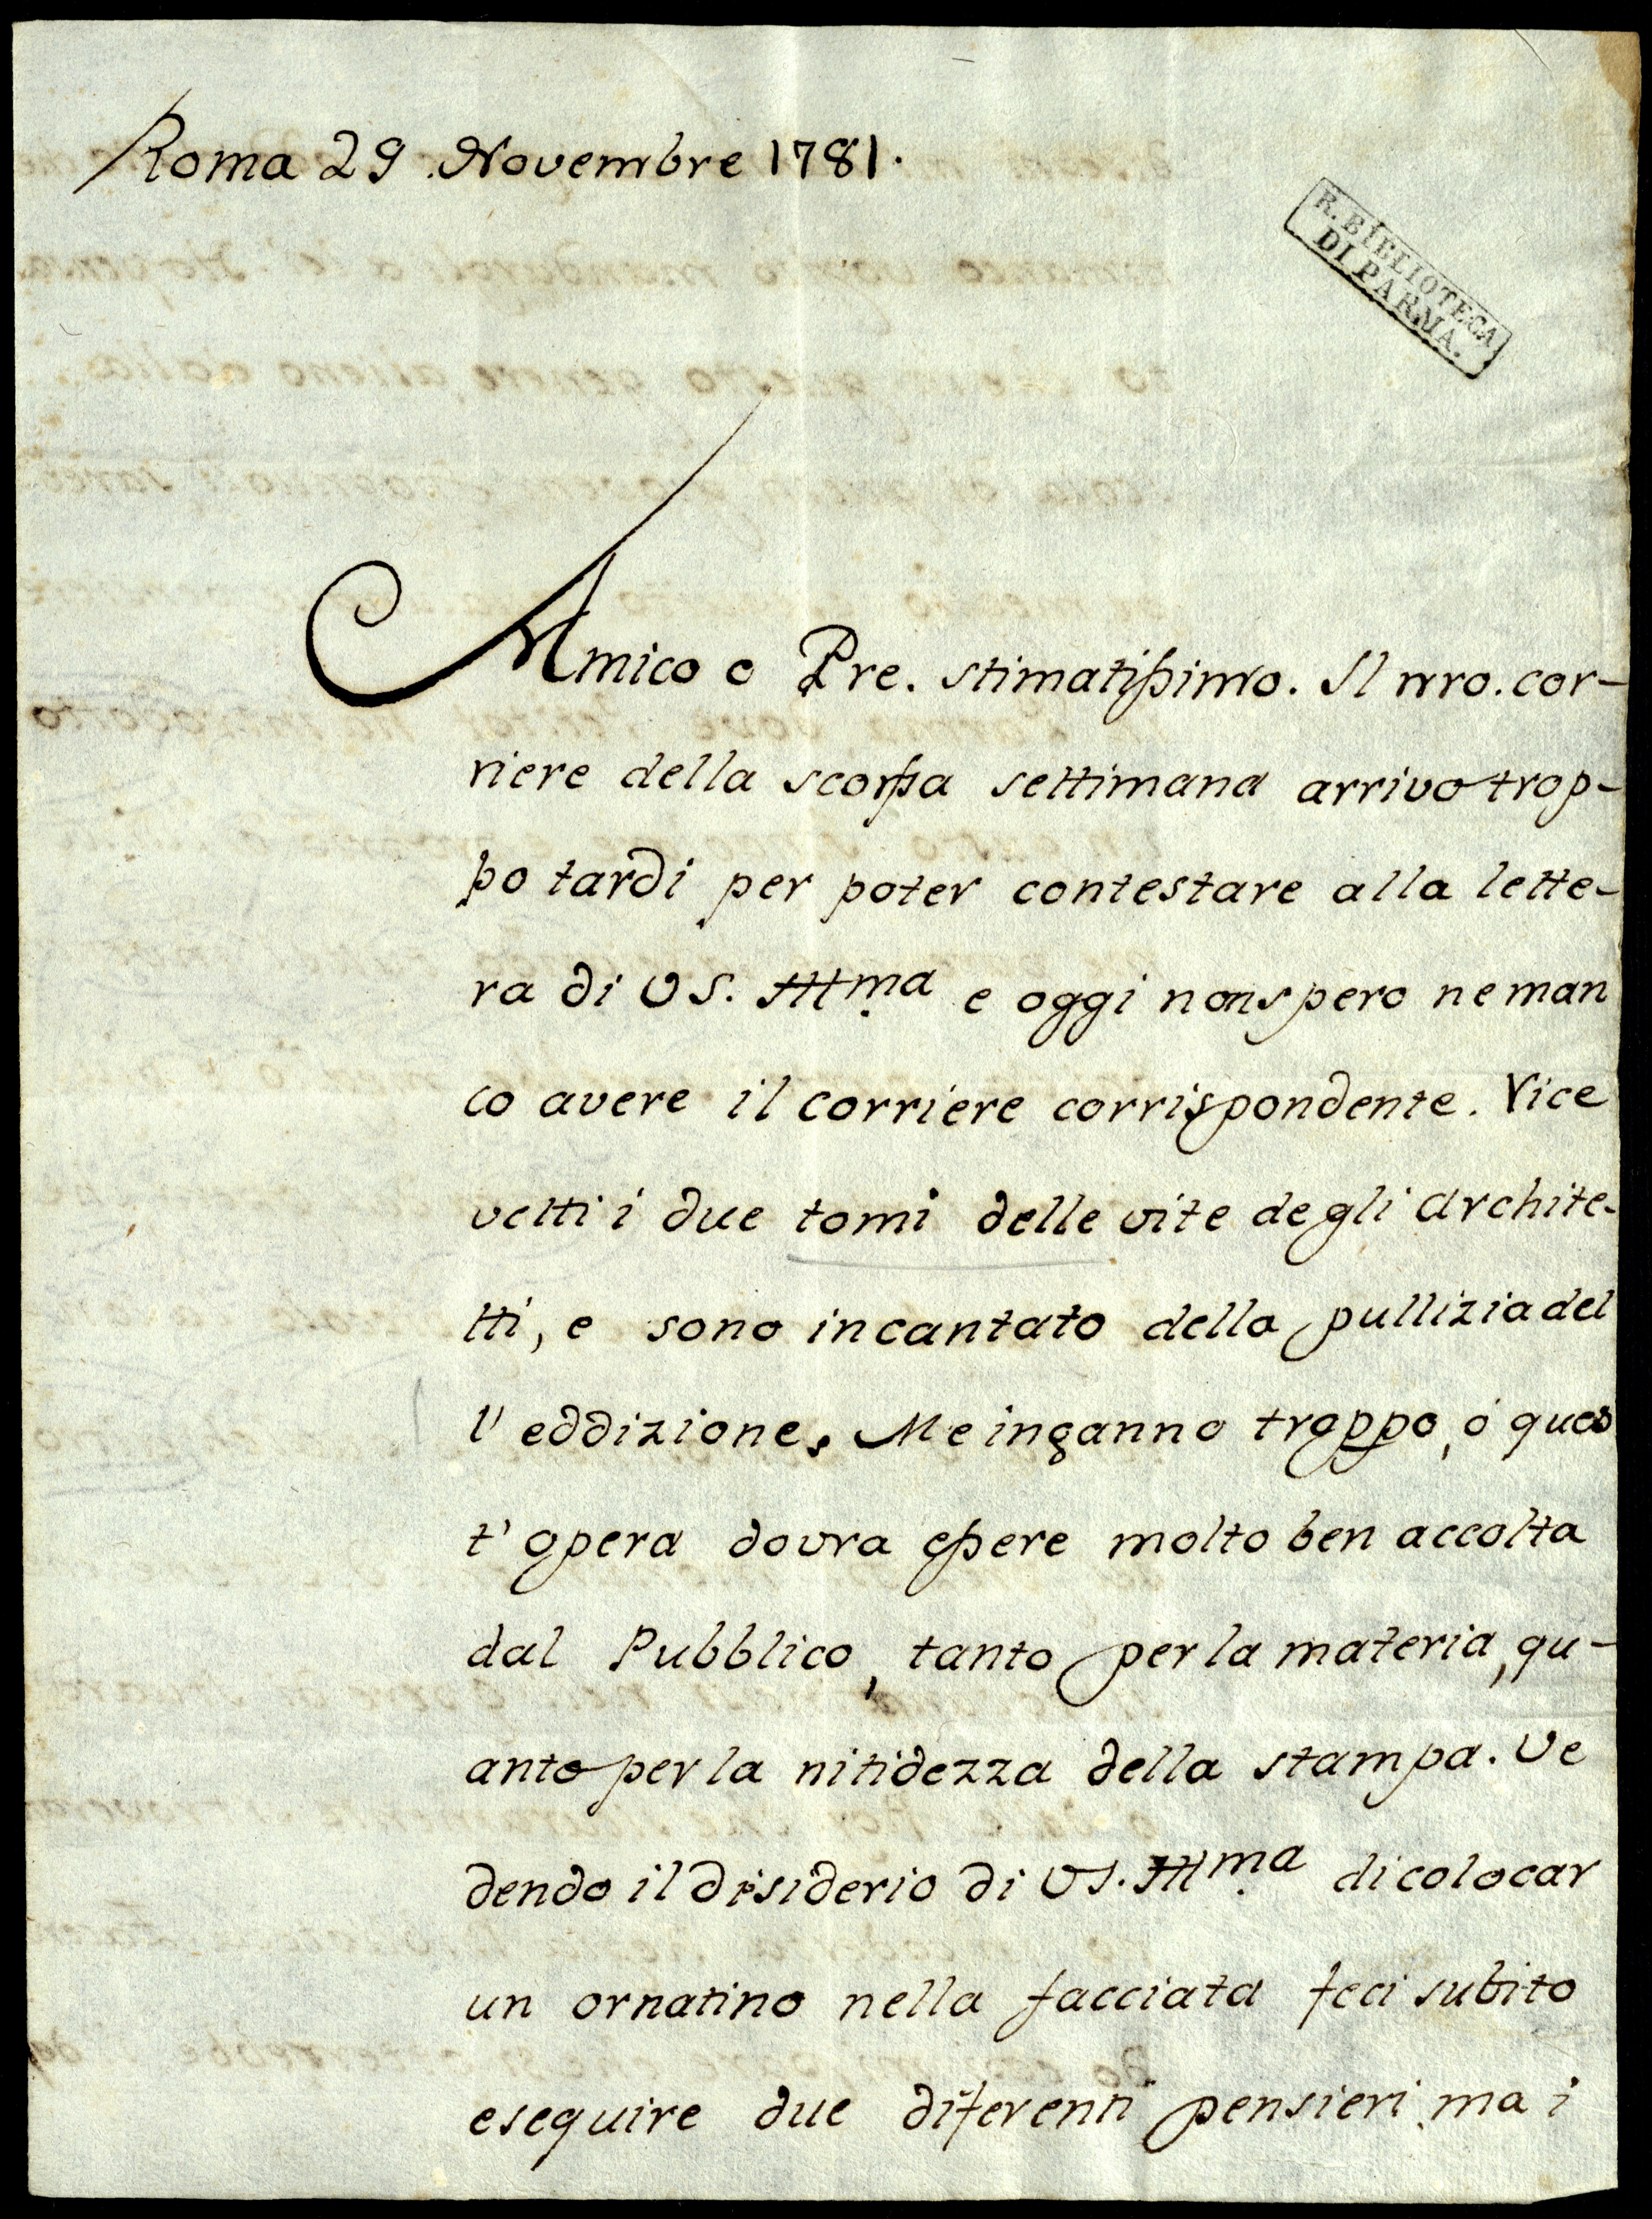 Roma 29 Novembre 1781.
R. BIBLIOTECA
DI PARMA.
Amico e Pre. stimatissimo. Il nro. cor-
riere della scorssa settimana arrivo trop-
po tardi per poter contestare alla lette-
ra di VS. Illma e oggi non spero ne man
co avere il corriere corrispondente. Rice
vetti i due tomi delle vite degli Archite-
tti, e sono incantato della pullizia del
l' eddizione. Me inganno troppo, ó ques
t' opera dovra essere molto ben accolta
dal Pubblico, tanto per la materia, qu-
anto per la nitidezza della stampa. Ve
dendo il disiderio di VS. Illma di colocar
un ornatino nella facciata feci subito
eseguire due diferenti pensieri, ma i